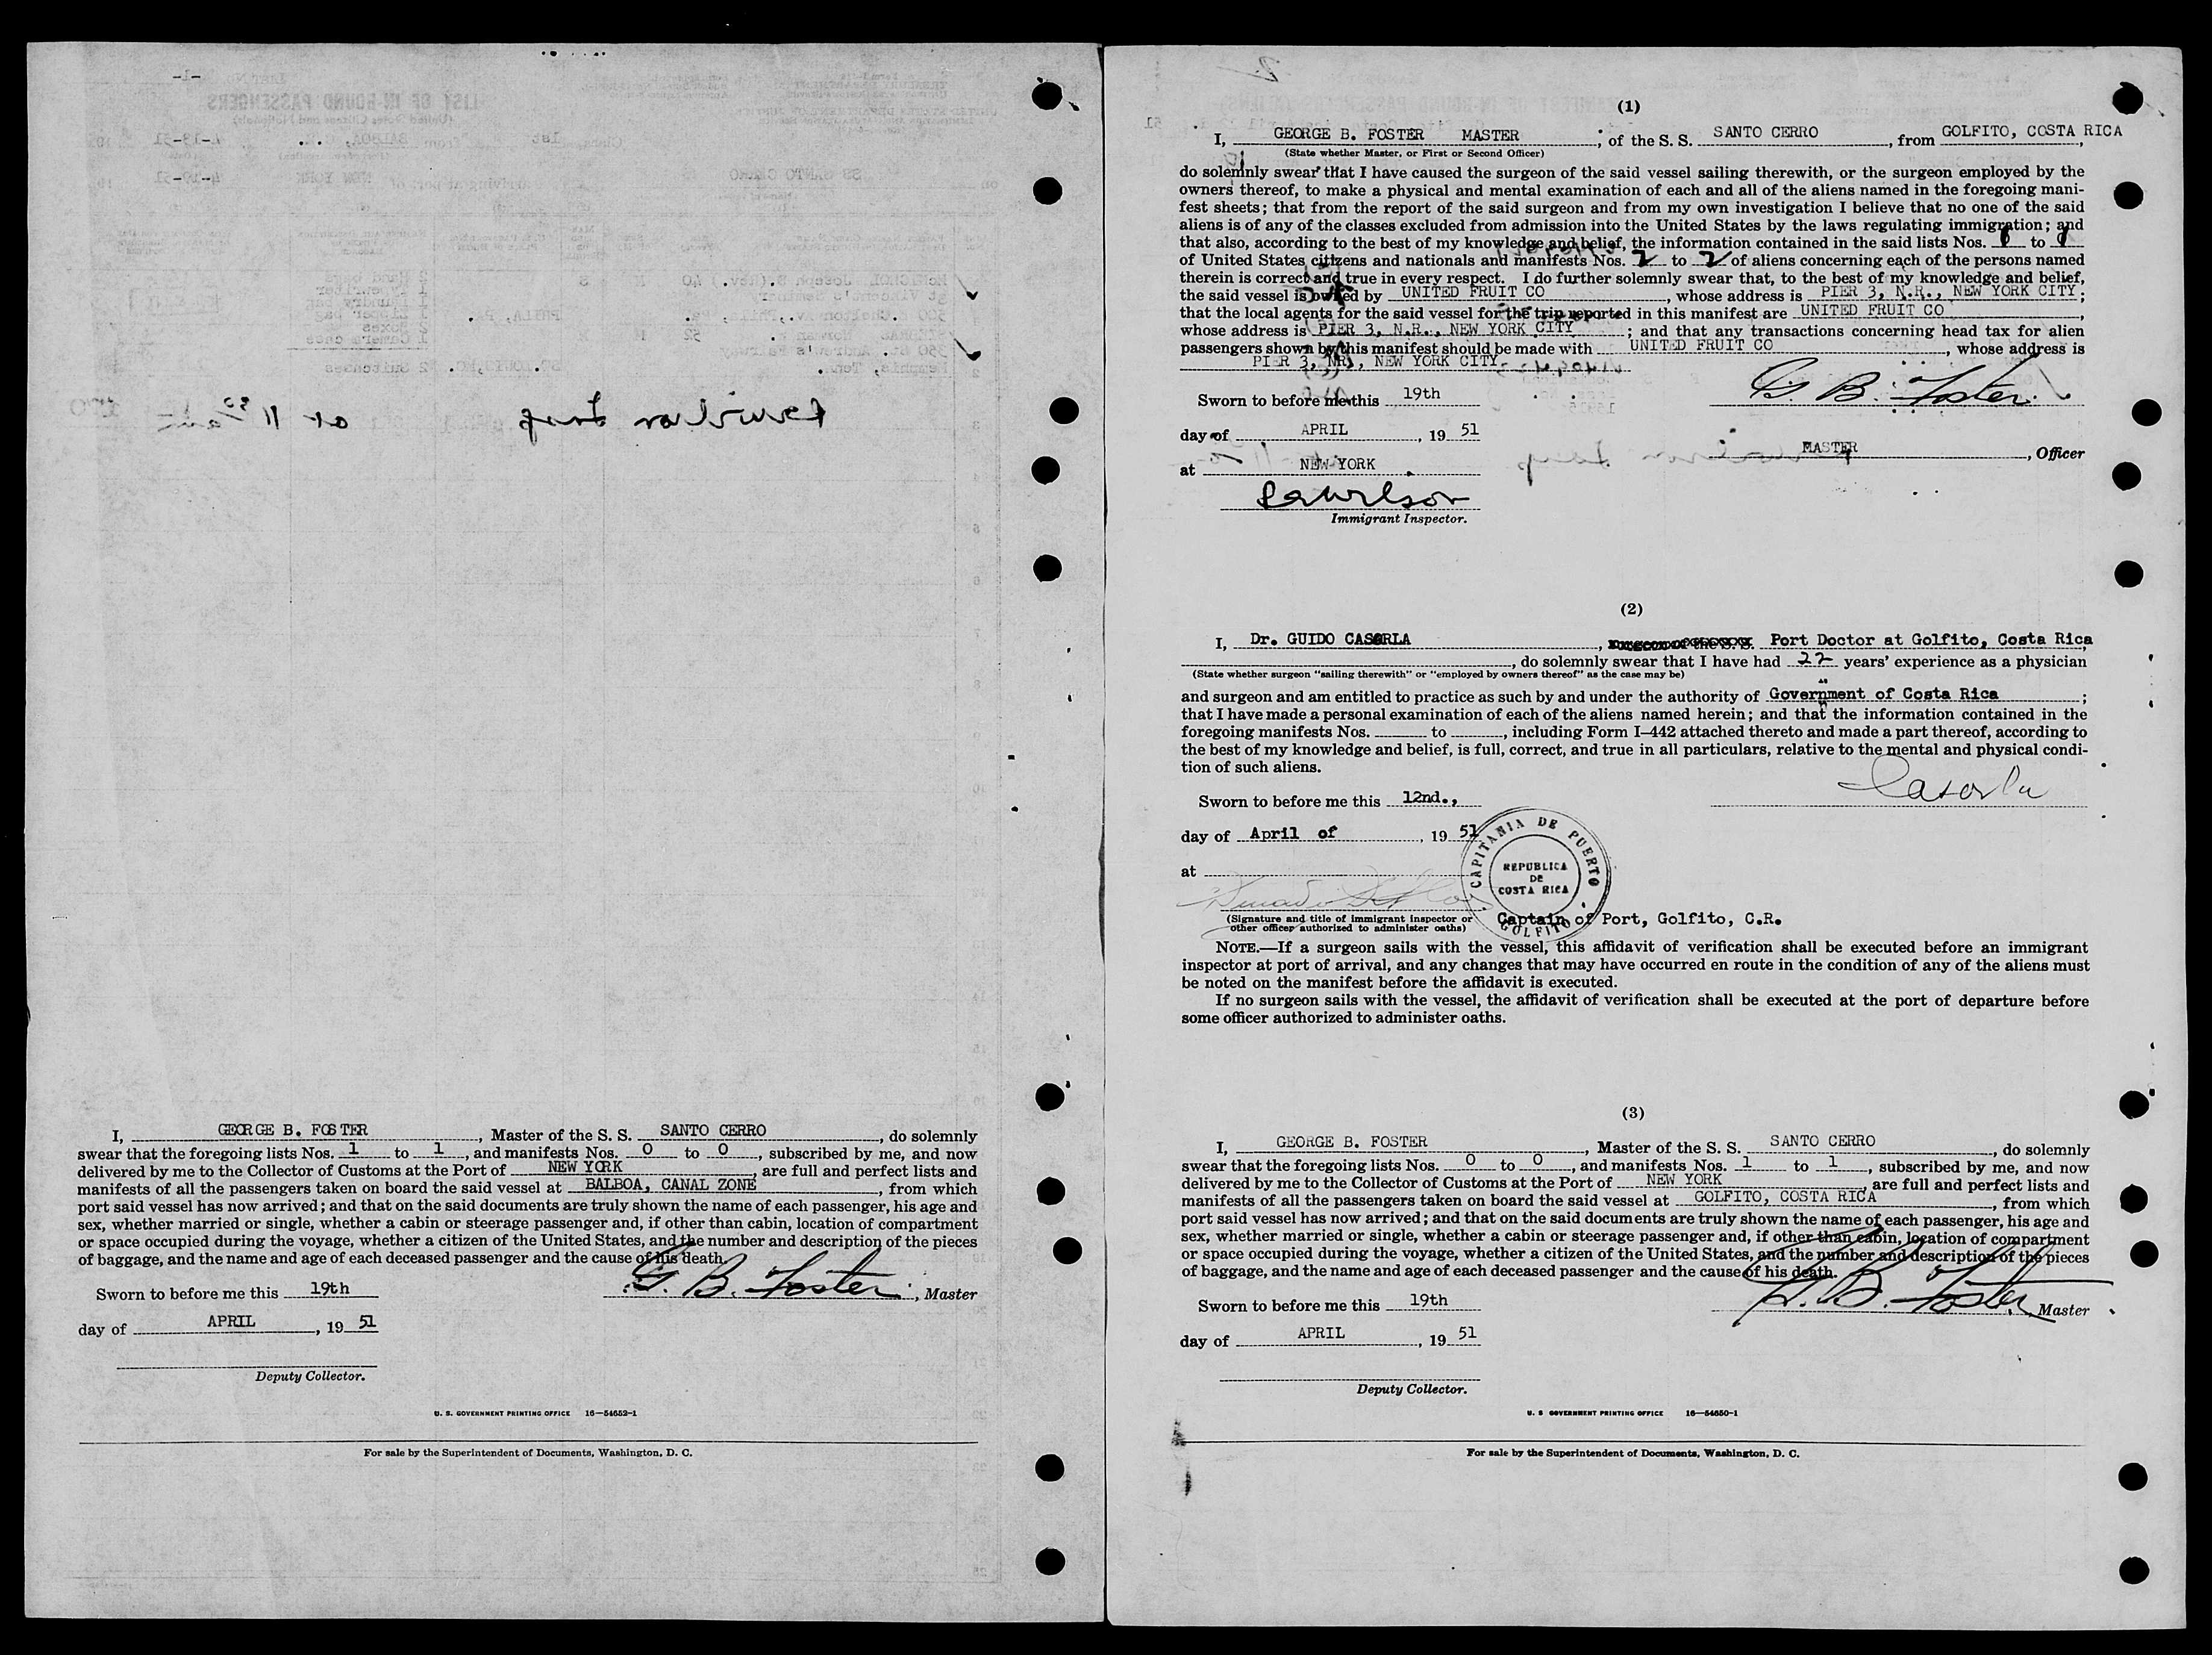 I, GEORGE B. FOSTER, Master of the S. S. SANTO CERRO, do solemnly
swear that the foregoing lists Nos. 1 to 1, and manifests Nos. 0 to 0, subscribed by me, and now
delivered by me to the Collector of Customs at the Port of NEW YORK, are full and perfect lists and
manifests of all the passengers taken on board the said vessel at BALBOA, CANAL ZONE, from which
port said vessel has now arrived; and that on the said documents are truly shown the name of each passenger, his age and
sex, whether married or single, whether a cabin or steerage passenger and, if other than cabin, location of compartment
or space occupied during the voyage, whether a citizen of the United States, and the number and description of the pieces
of baggage, and the name and age of each deceased passenger and the cause of his death.
G. B. Foster, Master
Sworn to before me this 19th
day of APRIL, 19 51
Deputy Collector.
U. S. GOVERNMENT PRINTING OFFICE 16—54652-1
For sale by the Superintendent of Documents, Washington, D. C.
(1)
I, GEORGE B. FOSTER MASTER; of the S. S. SANTO CERRO, from GOLFITO, COSTA RICA,
(State whether Master, or First or Second Officer)
do solemnly swear that I have caused the surgeon of the said vessel sailing therewith, or the surgeon employed by the
owners thereof, to make a physical and mental examination of each and all of the aliens named in the foregoing mani-
fest sheets; that from the report of the said surgeon and from my own investigation I believe that no one of the said
aliens is of any of the classes excluded from admission into the United States by the laws regulating immigration; and
that also, according to the best of my knowledge and belief, the information contained in the said lists Nos. to
of United States citizens and nationals and manifests Nos. 2 to 2 of aliens concerning each of the persons named
therein is correct and true in every respect. I do further solemnly swear that, to the best of my knowledge and belief,
the said vessel is owned by UNITED FRUIT CO, whose address is PIER 3, N.R., NEW YORK CITY;
that the local agents for the said vessel for the trip reported in this manifest are UNITED FRUIT CO,
whose address is PIER 3, N.R., NEW YORK CITY; and that any transactions concerning head tax for alien
passengers shown by this manifest should be made with UNITED FRUIT CO, whose address is
PIER 3, NR, NEW YORK CITY.
G. B. Foster
Sworn to before me this 19th
day of APRIL, 19 51
MASTER, Officer
at NEW YORK
RaWilson
Immigrant Inspector.
(2)
I, Dr. GUIDO CASORLA, Port Doctor at Golfito, Costa Rica
, do solemnly swear that I have had 22 years' experience as a physician
(State whether surgeon "sailing therewith" or "employed by owners thereof" as the case may be)
and surgeon and am entitled to practice as such by and under the authority of Government of Costa Rica;
that I have made a personal examination of each of the aliens named herein; and that the information contained in the
foregoing manifests Nos. to , including Form I-442 attached thereto and made a part thereof, according to
the best of my knowledge and belief, is full, correct, and true in all particulars, relative to the mental and physical condi-
tion of such aliens.
Casorla
Sworn to before me this 12nd.,
day of April of, 19 51
at
CAPITANIA DE PUERTO
REPUBLICA
DE
COSTA RICA
GOLFITO
(Signature and title of immigrant inspector or
other officer authorized to administer oaths)
Captain of Port, Golfito, C.R.
NOTE.—If a surgeon sails with the vessel, this affidavit of verification shall be executed before an immigrant
inspector at port of arrival, and any changes that may have occurred en route in the condition of any of the aliens must
be noted on the manifest before the affidavit is executed.
If no surgeon sails with the vessel, the affidavit of verification shall be executed at the port of departure before
some officer authorized to administer oaths.
(3)
I, GEORGE B. FOSTER, Master of the S. S. SANTO CERRO, do solemnly
swear that the foregoing lists Nos. 0 to 0, and manifests Nos. 1 to 1, subscribed by me, and now
delivered by me to the Collector of Customs at the Port of NEW YORK, are full and perfect lists and
manifests of all the passengers taken on board the said vessel at GOLFITO, COSTA RICA, from which
port said vessel has now arrived; and that on the said documents are truly shown the name of each passenger, his age and
sex, whether married or single, whether a cabin or steerage passenger and, if other than cabin, location of compartment
or space occupied during the voyage, whether a citizen of the United States, and the number and description of the pieces
of baggage, and the name and age of each deceased passenger and the cause of his death.
G. B. Foster, Master
Sworn to before me this 19th
day of APRIL, 19 51
Deputy Collector.
U. S GOVERNMENT PRINTING OFFICE 16—54650-1
For sale by the Superintendent of Documents, Washington, D. C.